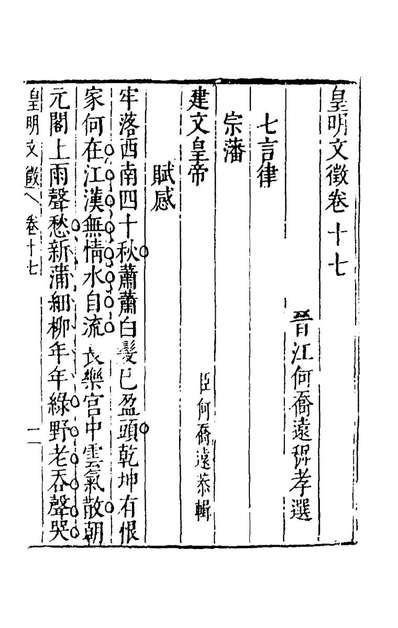 皇明文徵卷十七
晉江何喬遠穉孝選
七言律
宗藩
臣何喬遠恭輯
建文皇帝
賦感
牢落西南四十秋蕭蕭白髮已盈頭乾坤有恨
家何在江漢無情水自流長樂宮中雲氣散朝
元閣上雨聲愁新蒲細柳年年綠野老吞聲哭
皇明文徵 卷十七 一